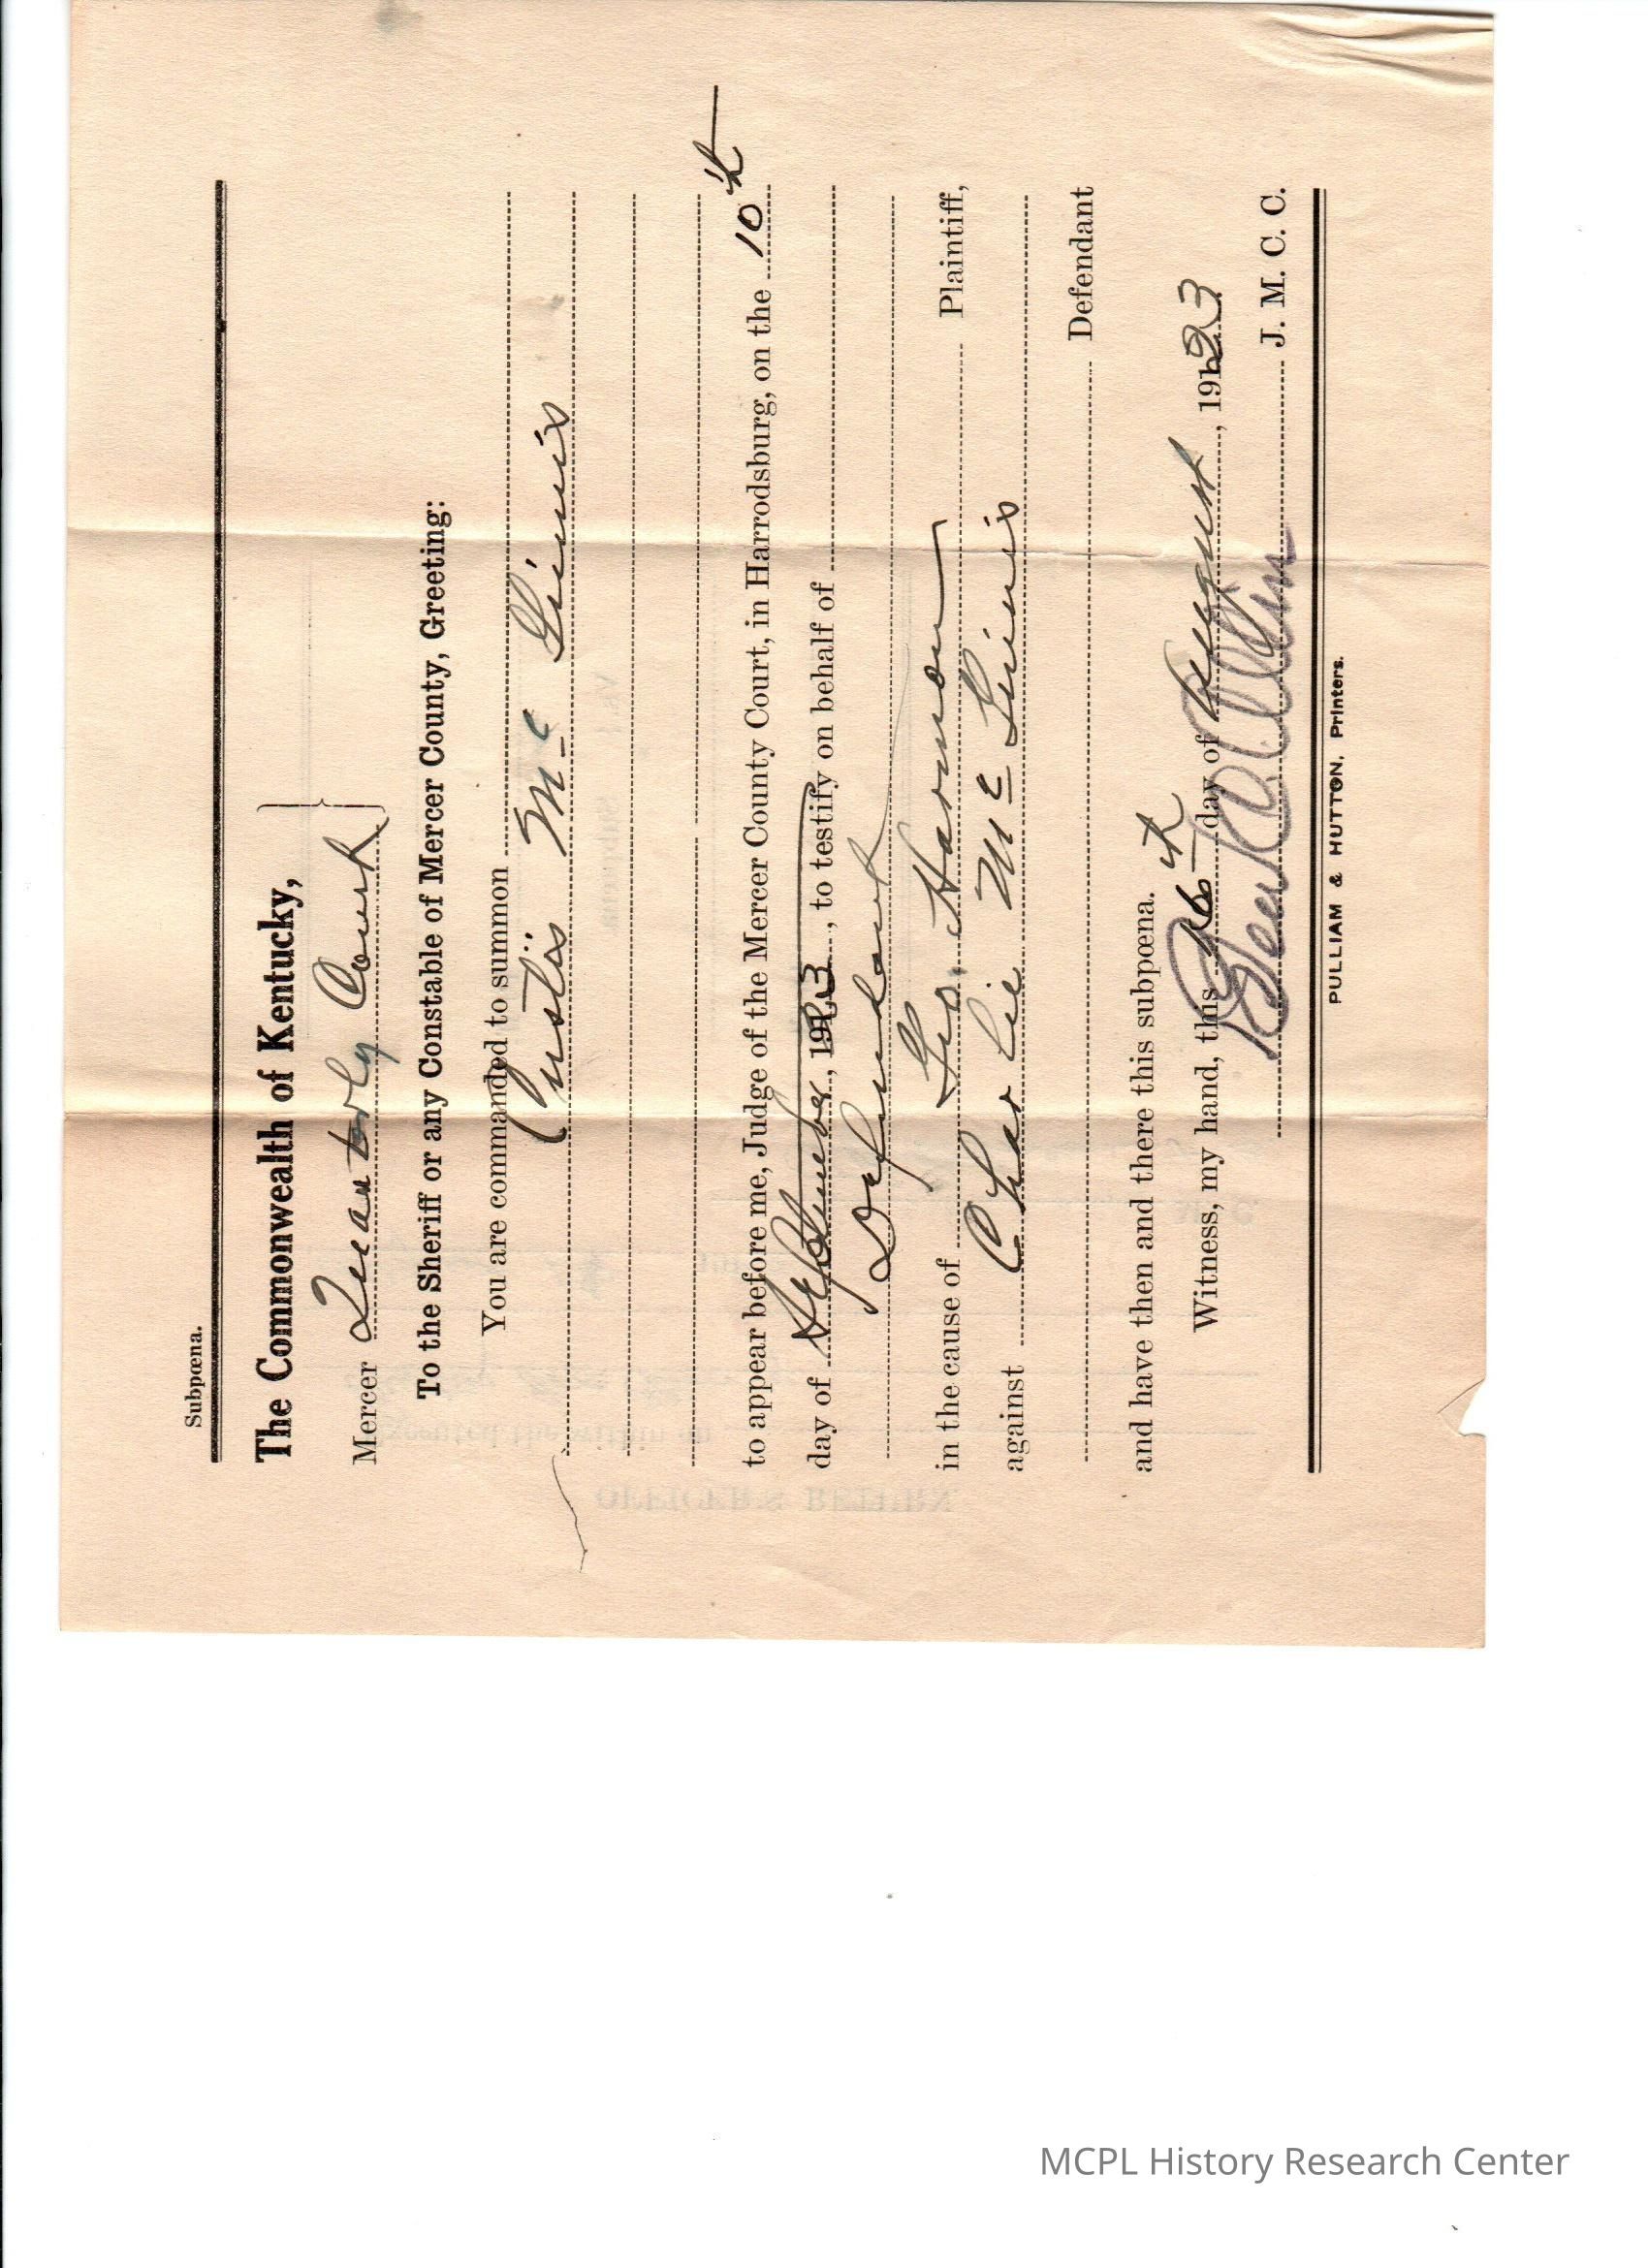 Subpœna.
The Commonwealth of Kentucky,
Mercer Quarterly Court
To the Sheriff or any Constable of Mercer County, Greeting:
You are commanded to summon
Custis Mc Ginnis
to appear before me, Judge of the Mercer County Court, in Harrodsburg, on the 10th
day of September, 1923, to testify on behalf of
Defendant
in the cause of Geo. Harmon Plaintiff,
against Charlie Mc Ginnis
Defendant
and have then and there this subpœna.
Witness, my hand, this day of August, 1923
J. M. C. C.
PULLIAM & HUTTON, Printers.
OFFICER'S RETURN
Executed the within on
MCPL History Research Center